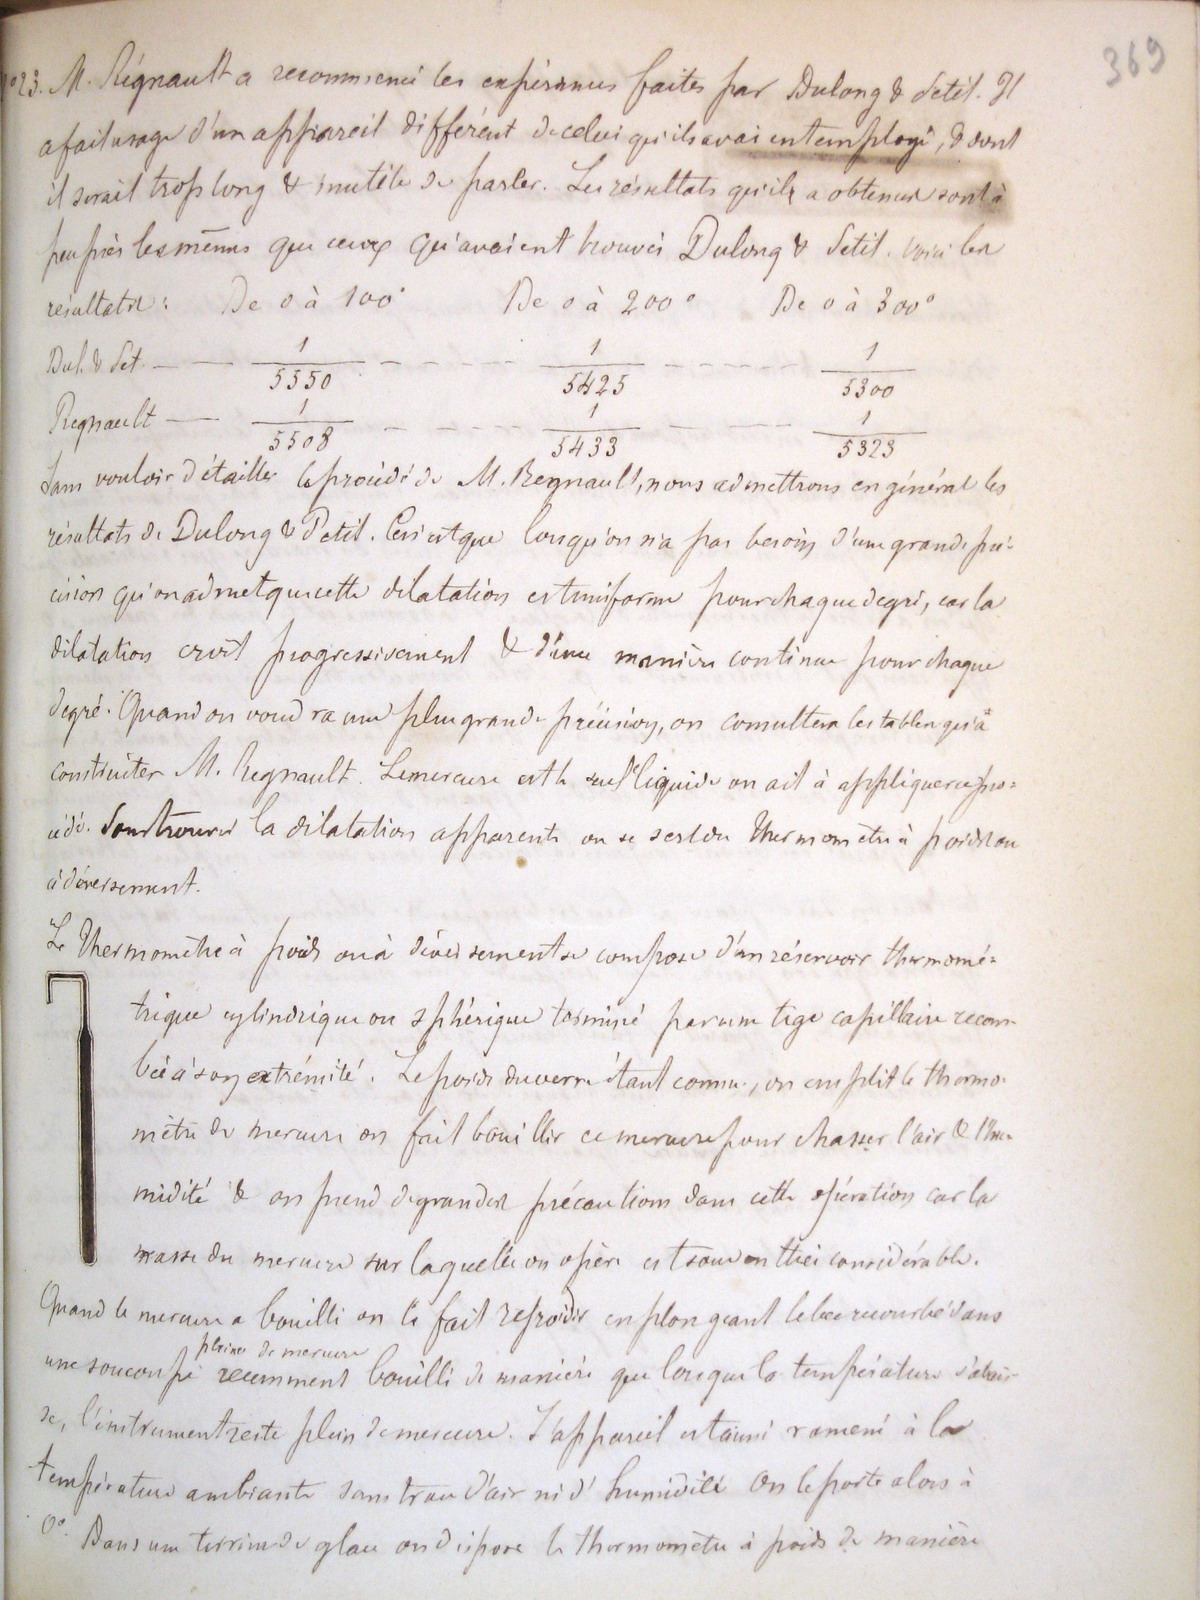 369
n°23. M. Régnault a recommencé les expériences faites par Dulong & Petit. Il
a fait usage d'un appareil différent de celui qu'ils avaient employé, & dont
il serait trop long & inutile de parler. Les résultats qu'il a obtenus sont à
peu près les mêmes que ceux qu'avaient trouvés Dulong & Petit. Voici les
résultats : De 0 à 100° De 0 à 200° De 0 à 300°
Dul. & Pet. — 1/5550 - - - 1/5425 - - - 1/5300
Regnault — 1/5508 - - - 1/5433 - - - 1/5323
Sans vouloir détailler le procédé de M. Regnault, nous admettrons en général les
résultats de Dulong & Petit. Ceci est que lorsqu'on n'a pas besoin d'une grande pré-
cision qu'on admet que cette dilatation est uniforme pour chaque degré, car la
dilatation croît progressivement & d'une manière continue pour chaque
degré. Quand on voudra une plus grande précision, on consultera les tables qu'a
construites M. Regnault. Le mercure est le seul liquide on ait à appliquer ce pro-
cédé. Pour trouver la dilatation apparente on se sert du Thermomètre à poids ou
à déversement.
Le Thermomètre à poids ou à déversement se compose d'un réservoir thermomé-
trique cylindrique ou sphérique terminé par une tige capillaire recour-
bée à son extrémité. Le poids du verre étant connu, on emplit le thermo-
mètre de mercure on fait bouillir ce mercure pour chasser l'air & l'hu-
midité & on prend de grandes précautions dans cette opération car la
masse du mercure sur laquelle on opère est souvent très considérable.
Quand le mercure a bouilli on le fait refroidir en plongeant le bec recourbé dans
une soucoupe pleine de mercure récemment bouilli de manière que lorsque la température s'abais-
se, l'instrument reste plein de mercure. L'appareil est ainsi ramené à la
température ambiante sans trace d'air ni d'humidité On le porte alors à
0°. Dans une terrine de glace on dispose le thermomètre à poids de manière